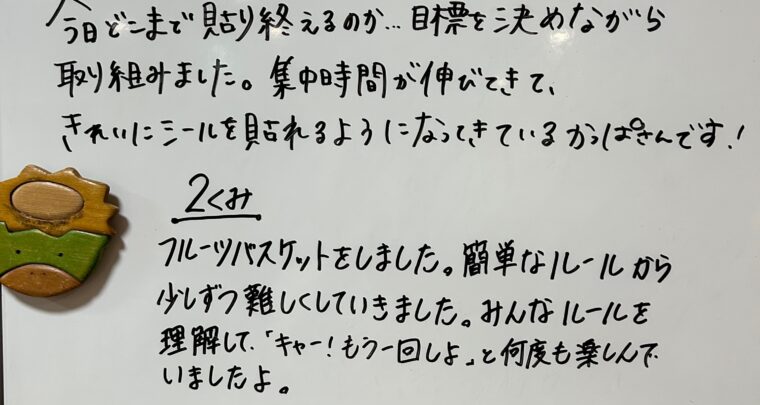 今日どこまで貼り終えるのか…目標を決めながら
取り組みました。集中時間が伸びてきて、
きれいにシールを貼れるようになってきているかっぱさんです！
2くみ
フルーツバスケットをしました。簡単なルールから
少しずつ難しくしていきました。みんなルールを
理解して、「キャー！もう一回しよ」と何度も楽しんで
いましたよ。